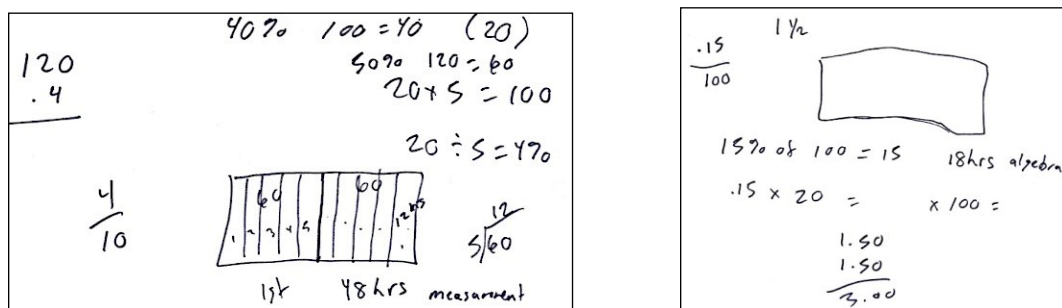 40% 100 = 40 (20)
120
.4
50% 120 = 60
20 x 5 = 100
20 ÷ 5 = 4%
4
10
60 60
1 2 3 4 5 . . . . 12 hrs
12
5 60
1st 48 hrs measurement
.15
100
1 1/2
15% of 100 = 15 18hrs algebra
.15 x 20 = x 100 =
1.50
1.50
3.00